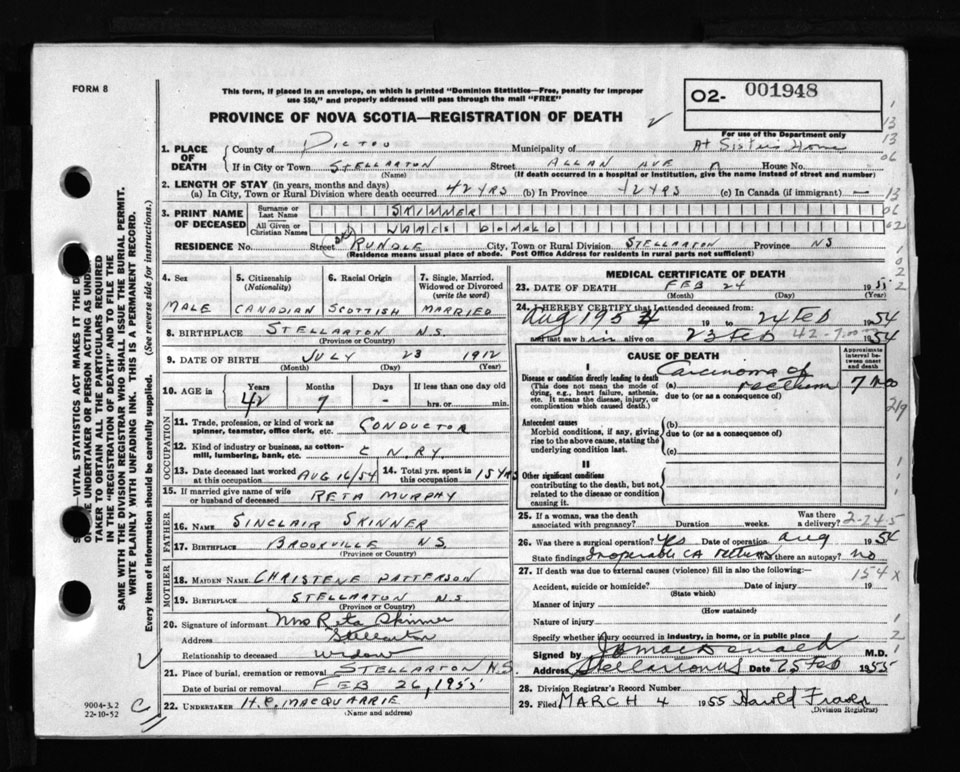 FORM 8
This form, if placed in an envelope, on which is printed "Dominion Statistics—Free, penalty for improper
use $50," and properly addressed will pass through the mail "FREE"
02- 001948
PROVINCE OF NOVA SCOTIA—REGISTRATION OF DEATH
For use of the Department only
1. PLACE OF DEATH
County of PICTOU Municipality of At Sisters Home
If in City or Town STELLARTON Street ALLAN AVE House No.
(Name) (If death occurred in a hospital or institution, give the name instead of street and number)
2. LENGTH OF STAY (in years, months and days)
(a) In City, Town or Rural Division where death occurred 42 YRS (b) In Province 42 YRS (c) In Canada (if immigrant) —
3. PRINT NAME OF DECEASED
Surname or Last Name SKINNER
All Given or Christian Names JAMES DONALD
RESIDENCE No. Street RUNDLE City, Town or Rural Division STELLARTON Province NS
(Residence means usual place of abode. Post Office Address for residents in rural parts not sufficient)
4. Sex MALE
5. Citizenship (Nationality) CANADIAN
6. Racial Origin SCOTTISH
7. Single, Married, Widowed or Divorced (write the word) MARRIED
8. BIRTHPLACE STELLARTON N.S.
(Province or Country)
9. DATE OF BIRTH JULY 23 1912
(Month) (Day) (Year)
10. AGE is Years 42 Months 7 Days - If less than one day old hrs. or min.
OCCUPATION
11. Trade, profession, or kind of work as spinner, teamster, office clerk, etc. CONDUCTOR
12. Kind of industry or business, as cotton-mill, lumbering, bank, etc. C N. RY.
13. Date deceased last worked at this occupation AUG 16/54
14. Total yrs. spent in this occupation 15 YRS
15. If married give name of wife or husband of deceased RETA MURPHY
FATHER
16. NAME SINCLAIR SKINNER
17. BIRTHPLACE BROOKVILLE N.S.
(Province or Country)
MOTHER
18. MAIDEN NAME CHRISTENE PATTERSON
19. BIRTHPLACE STELLARTON N.S
(Province or Country)
20. Signature of informant Mrs Reta Skinner
Address Stellarton
Relationship to deceased widow
21. Place of burial, cremation or removal STELLARTON N.S.
Date of burial or removal FEB 26, 1955
22. UNDERTAKER H.C. MACQUARRIE
(Name and address)
9004-3.2
22-10-52
MEDICAL CERTIFICATE OF DEATH
23. DATE OF DEATH FEB 24 1955
(Month) (Day) (Year)
24. I HEREBY CERTIFY that I attended deceased from:
Aug 1954 19 to 24 Feb 1954
and last saw him alive on 23 Feb 1954
CAUSE OF DEATH
Approximate interval between onset and death
I
Disease or condition directly leading to death (a) Carcinoma of rectum 7 mo
(This does not mean the mode of dying, e.g., heart failure, asthenia, etc. It means the disease, injury, or complication which caused death.)
due to (or as a consequence of)
219
Antecedent causes
Morbid conditions, if any, giving rise to the above cause, stating the underlying condition last.
(b)
due to (or as a consequence of)
(c)
II
Other significant conditions contributing to the death, but not related to the disease or condition causing it.
25. If a woman, was the death associated with pregnancy? Duration weeks. Was there a delivery?
26. Was there surgical operation? Yes Date of operation Aug 1954
State findings Inoperable CA rectum Was there an autopsy? no
27. If death was due to external causes (violence) fill in also the following:
154 x
Accident, suicide or homicide? Date of injury 19
(State which)
Manner of injury
(How sustained)
Nature of injury
Specify whether injury occurred in industry, in home, or in public place
Signed by M.D.
Address Stellarton NS Date 25 Feb 1955
28. Division Registrar's Record Number
29. Filed MARCH 4 1955 Harold Fraser
(Division Registrar)
TAKER TO OBTAIN ALL THE PARTICULARS REQUIRED
IN THE "REGISTRATION OF DEATH" AND TO FILE THE
SAME WITH THE DIVISION REGISTRAR WHO SHALL ISSUE THE BURIAL PERMIT.
WRITE PLAINLY WITH UNFADING INK. THIS IS A PERMANENT RECORD.
Every item of information should be carefully supplied. (See reverse side for instructions.)